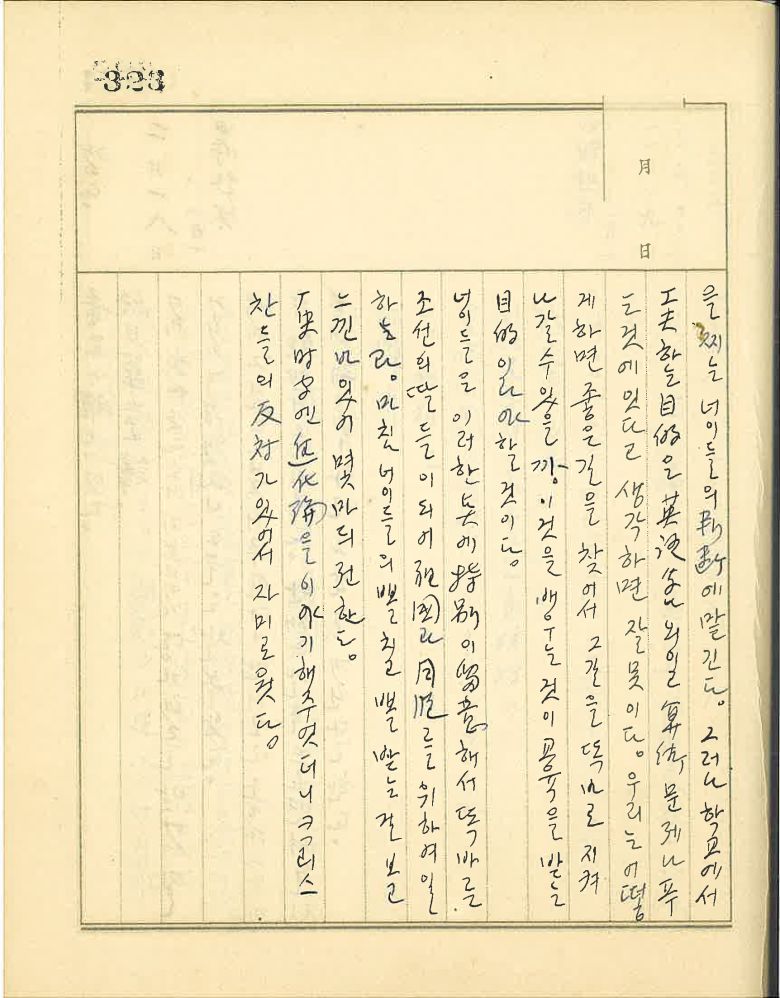 323
月
日
을 찌는 너이들의 에 맡긴다. 그러나 학교에서
工夫하는 目的을 英語 字나 외일 算術 문제나 푸
는것에 있다고 생각하면 잘못이다. 우리는 어떻
게 하면 좋은 길을 찾어서 그길을 똑바로 지켜
나갈 수 있을까 이것을 배우는 것이 공육을 받는
目的이라야 할 것이다
너이들은 이러한 点에 特別이 留意해서 똑바른
조선의 딸들이 되어 祖国과 同胞를 위하여 일
하는 마침 너이들의 뺄 치고 뺄 받는 걸 보고
느낀바 있어 몇마듸 전한다.
歷史 時間엔 進化論을 이야기해주엇더니 크리스
찬들의 反対가 있어서 자미로웟다.